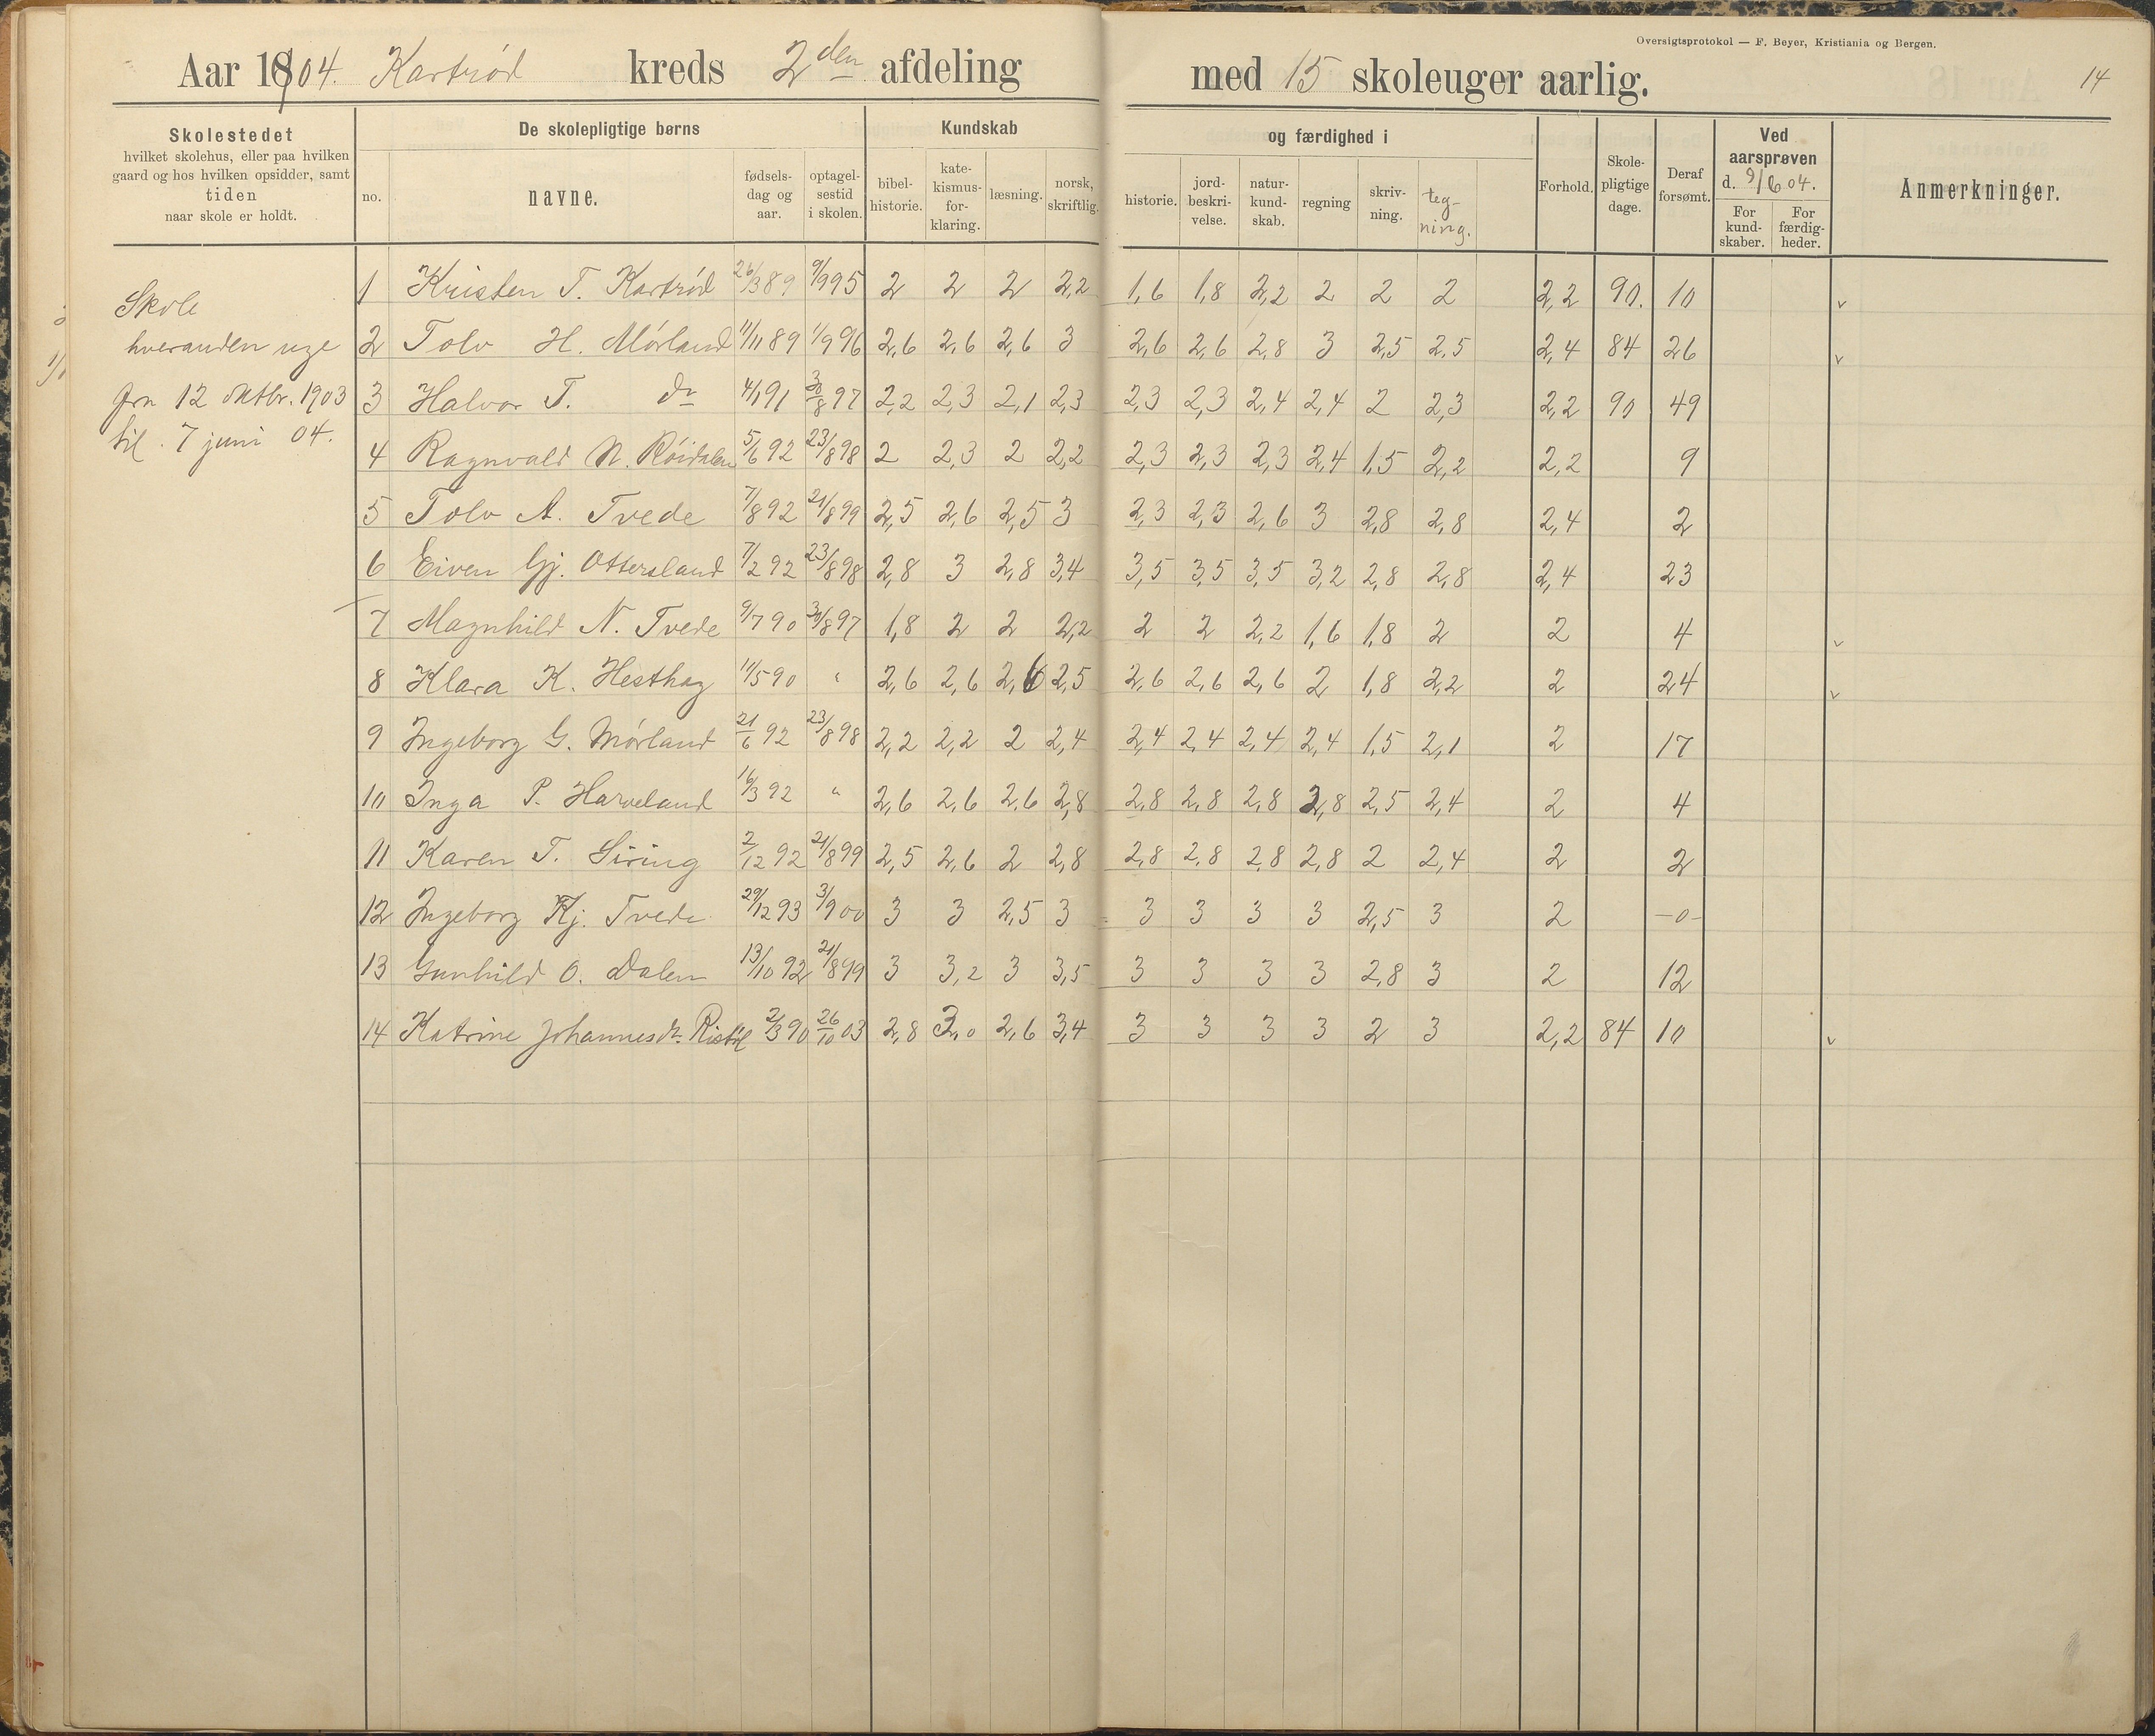 Oversigtsprotokol — F. Beyer, Kristiania og Bergen.
Aar 1904. Kartrød kreds 2den afdeling med 15 skoleuger aarlig. 14
Skolestedet
hvilket skolehus, eller paa hvilken
gaard og hos hvilken opsidder, samt
tiden
naar skole er holdt.
De skolepligtige børns
no. navne. fødsels-dag og aar. optagel-sestid i skolen.
Kundskab og færdighed i
bibel-historie. kate-kismus-for-klaring. læsning. norsk, skriftlig. historie. jord-beskri-velse. natur-kund-skab. regning skriv-ning. teg-ning.
Forhold. Skole-pligtige dage. Deraf forsømt.
Ved aarsprøven d. 9/6 04.
For kund-skaber. For færdig-heder.
Anmerkninger.
Skole
hveranden uge
fra 12 oktbr. 1903
til 7 juni 04.
1 Kristen T. Kartrød 26/3 89 9/9 95 2 2 2 2,2 1,6 1,8 2,2 2 2 2 2,2 90. 10 v
2 Tolv H. Mørland 11/11 89 1/9 96 2,6 2,6 2,6 3 2,6 2,6 2,8 3 2,5 2,5 2,4 84 26 v
3 Halvor T. do 4/1 91 30/8 97 2,2 2,3 2,1 2,3 2,3 2,3 2,4 2,4 2 2,3 2,2 90 49
4 Ragnvald N. Røidalen 5/6 92 23/8 98 2 2,3 2 2,2 2,3 2,3 2,3 2,4 1,5 2,2 2,2 9
5 Tolv A. Tvede 7/8 92 21/8 99 2,5 2,6 2,5 3 2,3 2,3 2,6 3 2,8 2,8 2,4 2
6 Eiven Gj. Ottersland 7/2 92 23/8 98 2,8 3 2,8 3,4 3,5 3,5 3,5 3,2 2,8 2,8 2,4 23
7 Magnhild N. Tvede 9/7 90 30/8 97 1,8 2 2 2,2 2 2 2,2 1,6 1,8 2 2 4 v
8 Klara K. Hesthag 11/5 90 " 2,6 2,6 2,6 2,5 2,6 2,6 2,6 2 1,8 2,2 2 24 v
9 Ingeborg G. Mørland 21/6 92 23/8 98 2,2 2,2 2 2,4 2,4 2,4 2,4 2,4 1,5 2,1 2 17
10 Inga P. Harveland 16/3 92 " 2,6 2,6 2,6 2,8 2,8 2,8 2,8 2,8 2,5 2,4 2 4
11 Karen T. Siring 2/12 92 21/8 99 2,5 2,6 2 2,8 2,8 2,8 2,8 2,8 2 2,4 2 2
12 Ingeborg Kj. Tvede 29/12 93 3/9 00 3 3 2,5 3 3 3 3 3 2,5 3 2 -0-
13 Gunhild O. Dalen 13/10 92 21/8 99 3 3,2 3 3,5 3 3 3 3 2,8 3 2 12
14 Katrine Johannesdr. 2/3 90 26/10 03 2,8 3,0 2,6 3,4 3 3 3 3 2 3 2,2 84 10 v